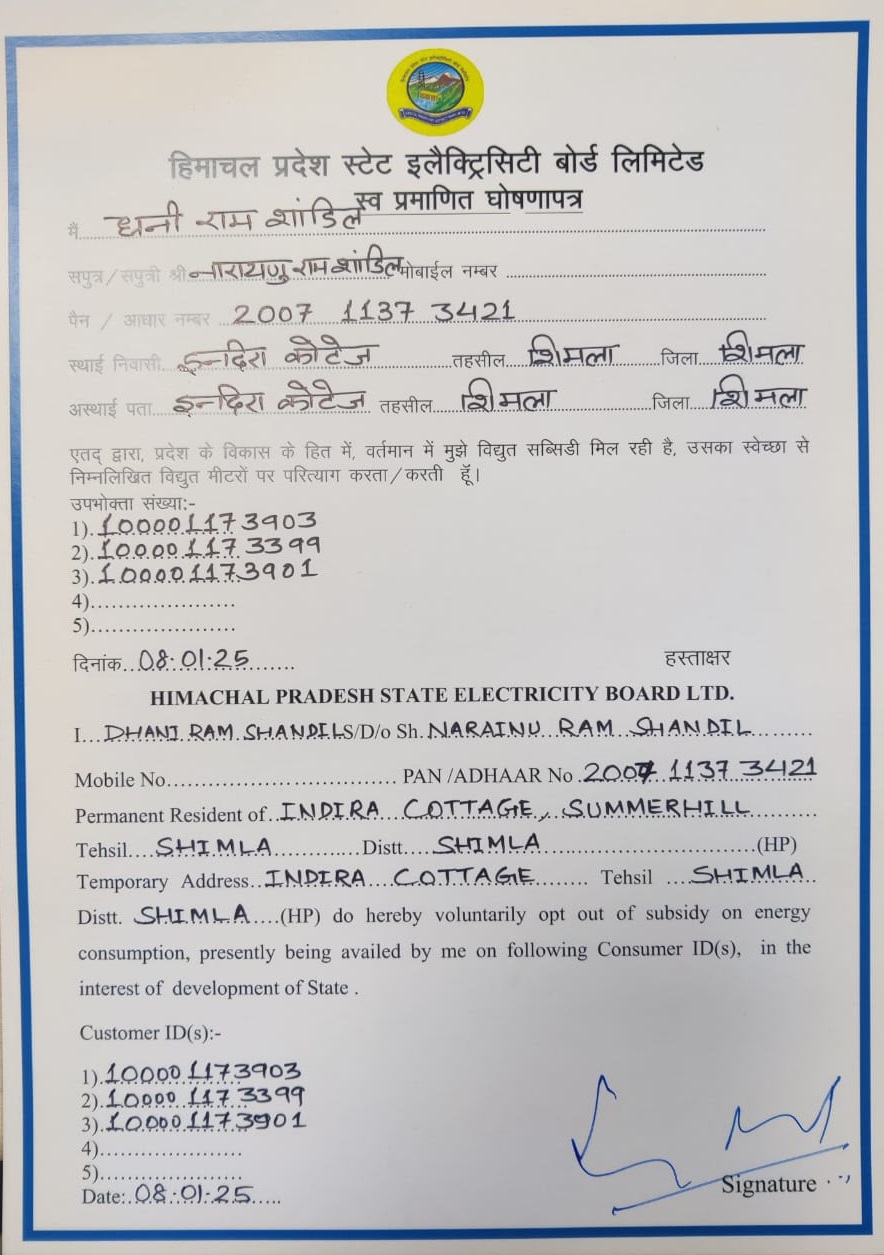 हिमाचल प्रदेश स्टेट इलैक्ट्रिसिटी बोर्ड लिमिटेड
स्व प्रमाणित घोषणापत्र
मैं धनी राम शांडिल
सपुत्र/सपुत्री श्री नारायणु राम शांडिल मोबाईल नम्बर
पैन / आधार नम्बर 2007 1137 3421
स्थाई निवासी इन्दिरा कोटेज तहसील शिमला जिला शिमला
अस्थाई पता इन्दिरा कोटेज तहसील शिमला जिला शिमला
एतद् द्वारा, प्रदेश के विकास के हित में, वर्तमान में मुझे विद्युत सब्सिडी मिल रही है, उसका स्वेच्छा से
निम्नलिखित विद्युत मीटरों पर परित्याग करता/करती हूँ।
उपभोक्ता संख्या:-
1). 100001173903
2). 100001173399
3). 100001173901
4)
5)
दिनांक 08.01.25 हस्ताक्षर
HIMACHAL PRADESH STATE ELECTRICITY BOARD LTD.
I DHANI RAM SHANDIL S/D/o Sh. NARAINU RAM SHANDIL
Mobile No. PAN /ADHAAR No. 2007 1137 3421
Permanent Resident of INDIRA COTTAGE, SUMMERHILL
Tehsil SHIMLA Distt SHIMLA (HP)
Temporary Address INDIRA COTTAGE Tehsil SHIMLA
Distt. SHIMLA (HP) do hereby voluntarily opt out of subsidy on energy
consumption, presently being availed by me on following Consumer ID(s), in the
interest of development of State .
Customer ID(s):-
1). 100001173903
2). 100001173399
3). 100001173901
4)
5)
Date: 08.01.25
Signature